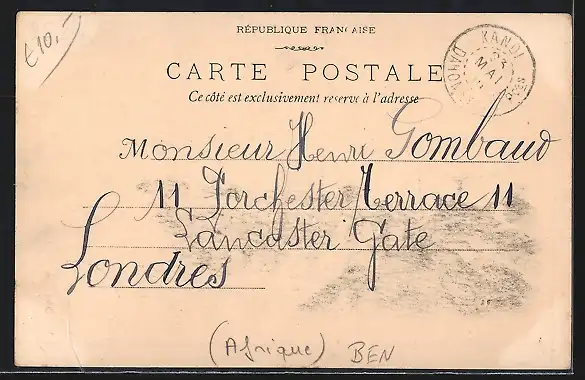 €10,-
RÉPUBLIQUE FRANÇAISE
CARTE POSTALE
Ce côté est exclusivement reservé à l'adresse
KANDI
23
MAI
DAHOMEY
Monsieur Henri Gombaud
11 Porchester Terrace 11
Lancaster Gate
Londres
(Afrique) BEN